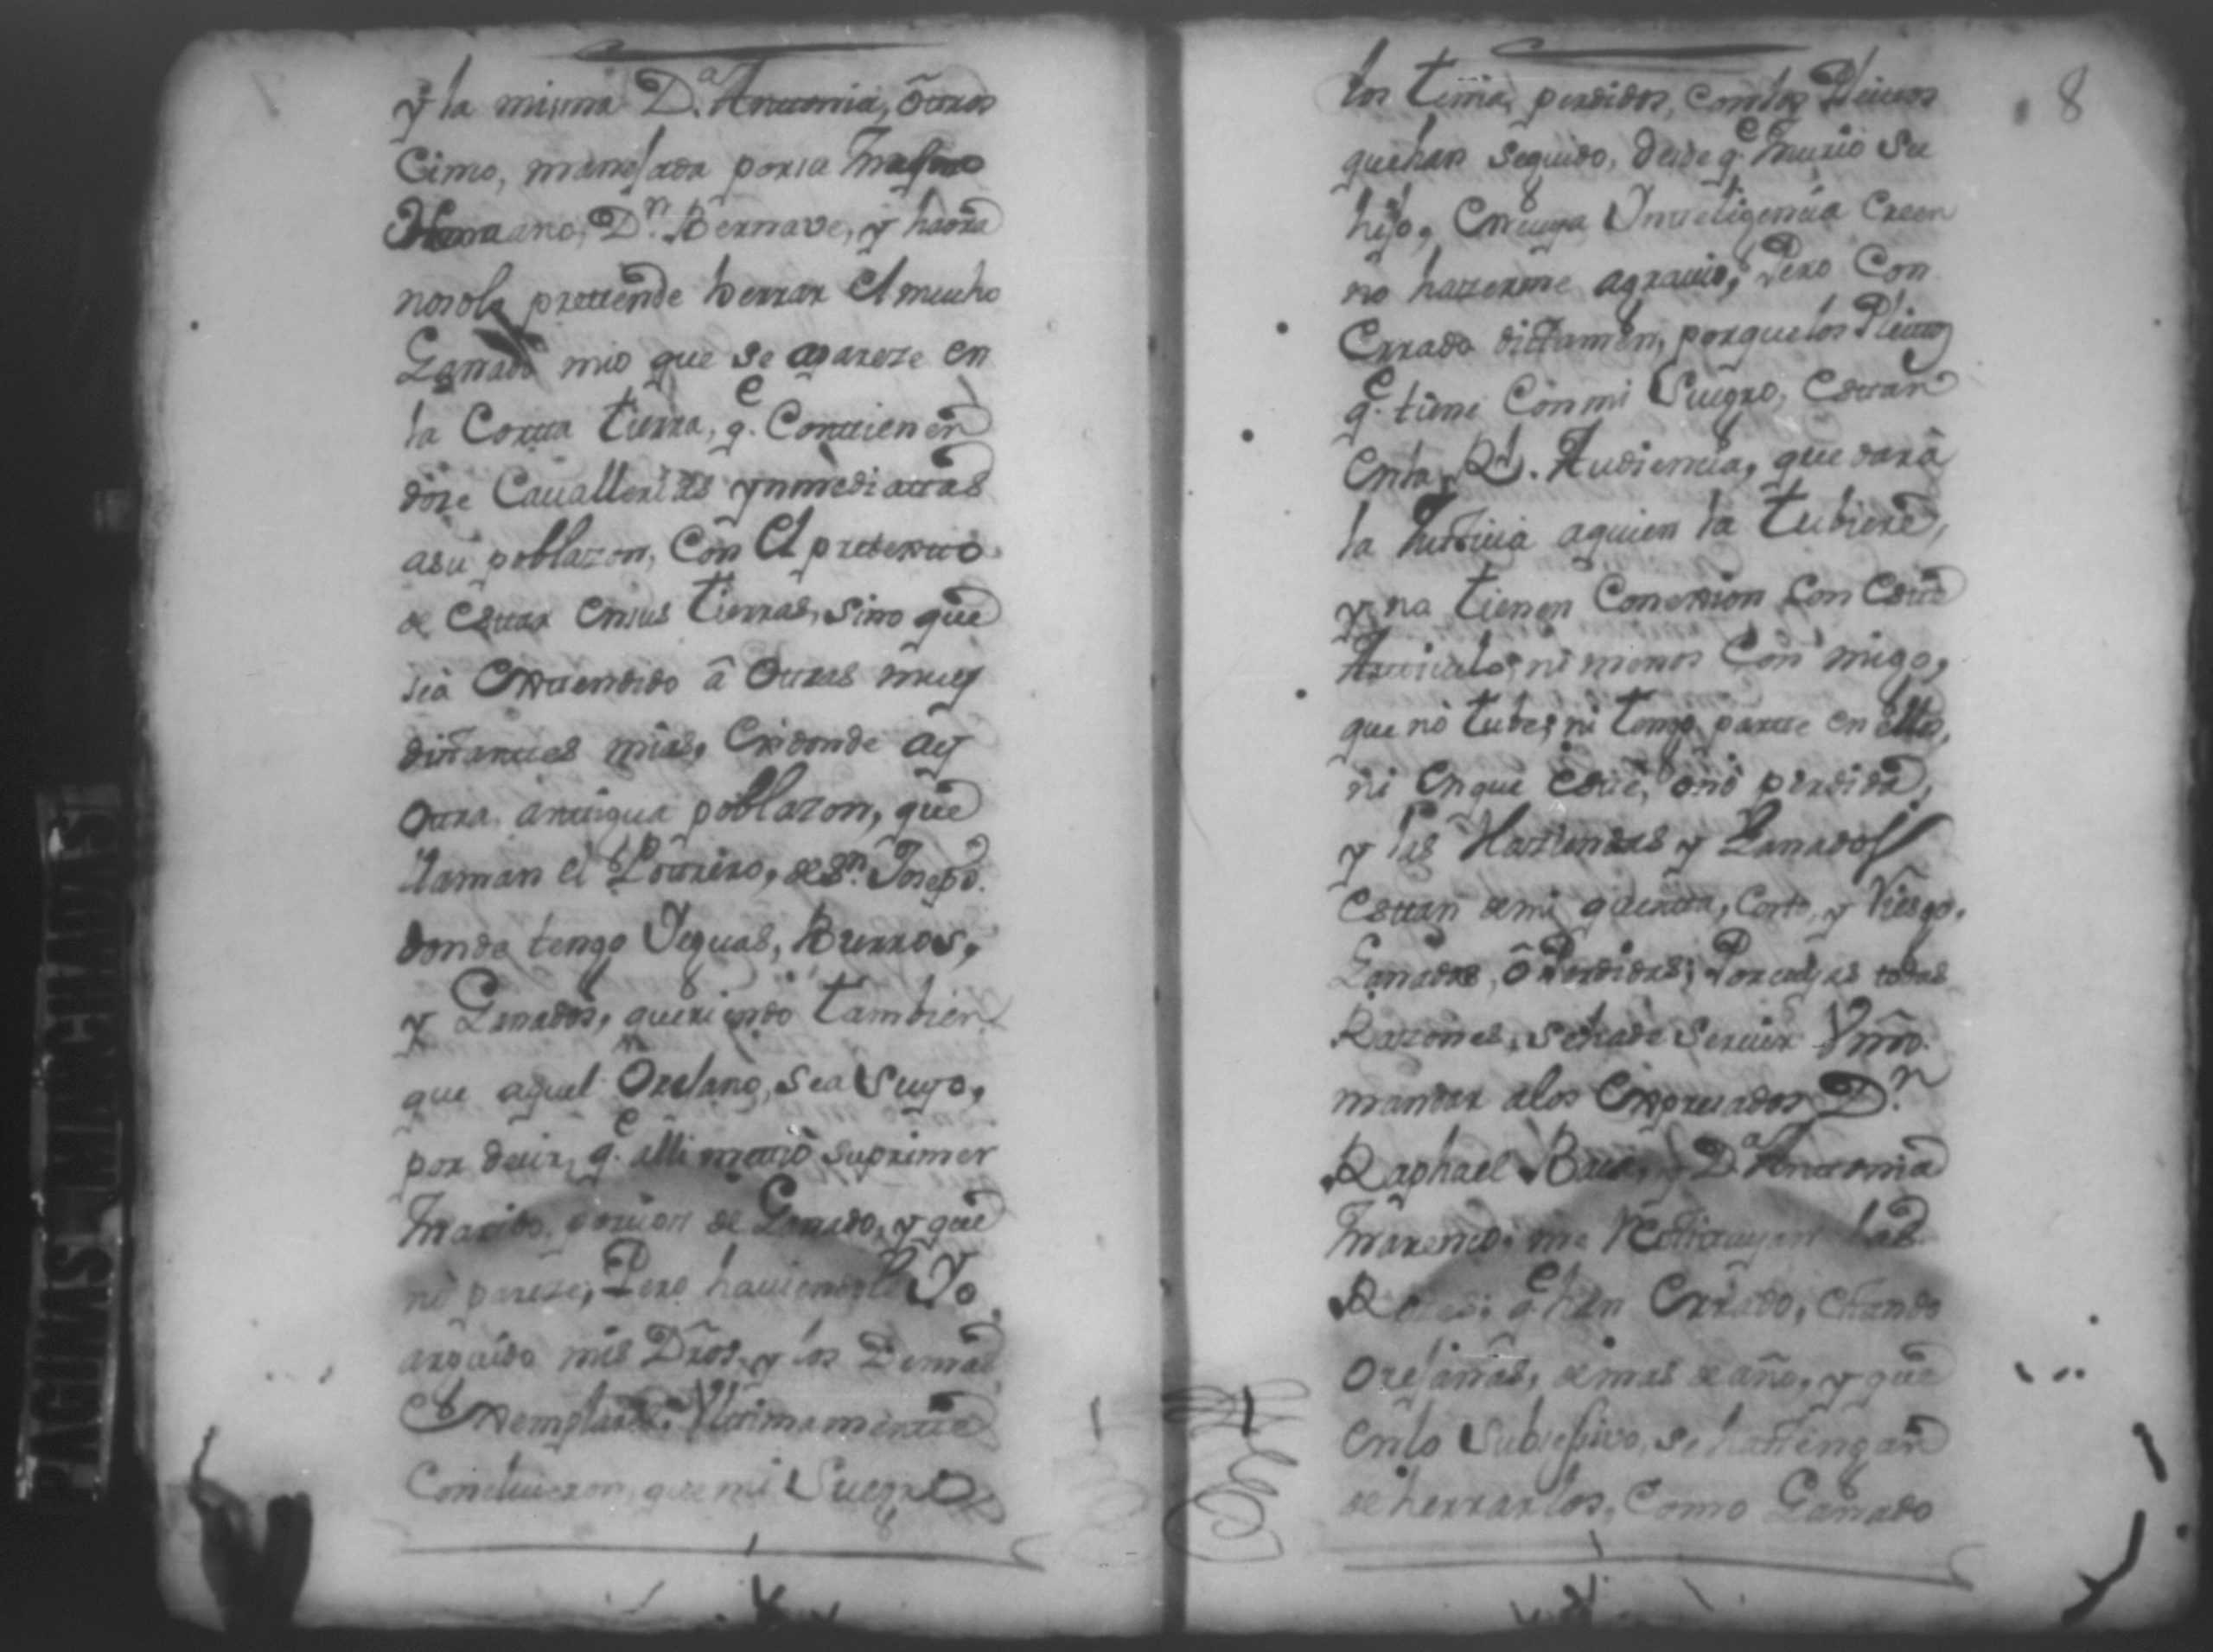 y la misma D.ª Antonia, otros
Cinco, manejada por su mismo
Hermano, D.n Bernave, y haora
nosolo prettende herrar el mucho
Ganado mio que se apareze en
la Cortta tierra, q.e Conttienen
dóze Cauallerias ynmediattas
asu poblazon, Con el pretextto
de Esttar Ensus tierras, sino que
sea Exttendido â Ottras muy
disttanttes mias, Endonde ay
Ottra anttigua poblazon, que
llaman el Pottrero, de S.n Joseph.
donde tengo Yeguas, Burros,
y Ganados, queriendo tambien
que aquel Orejano, sea Suyo,
por dezir, q.e alli mettió suprimer
Marido, porcion de Ganado, y que
ni pareze, Pero hauiendole Yo
arguido mis Dros, y los Demas
Exemplares, Vltimamentte
Concluieron, que mi Suegro
8
los tenia perdidos, Conlos Pleittos
quehan seguido, desde q.e Murió su
hijo, Encuya Ynttelígencia Creen
nó hazerme agrauio, Pero Con
Errado dictamen, porquelos Pleittos
q.e tiene Con mi Suegro, Esttan
Enla Rl. Audiencia, que dará
la Justicia aquien la tubiere,
y no tienen Conexion Con Estte
Artticulo, ni menos Con migo,
que nó tube, ni tengo partte en ellos,
ni Enque Estté, ónó perdida,
y las Haziendas y Ganados
Esttan demi quentta, Costo, y Riesgo.
Ganadas, ô Perdidas, Porcuyas todas
Razones, sehade Seruir Vmd.
mandar alos Expresados D.n
Raphael Baca, y D.ª Antonia
Moreno, me Resttituyan las
Reses, q.e han Errado, Estando
Orejanas, demas deaño, y que
Enlo Subsesiuo, se hattengan
deherrarlos, Como Ganado